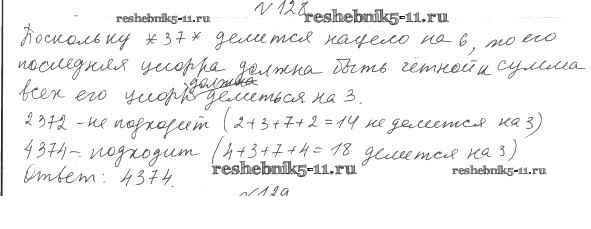 №128
www.reshebnik5-11.ru reshebnik5-11.ru
Поскольку *37* делится нацело на 6, то его
последняя цифра должна быть чётной и сумма
всех его цифр должна делиться на 3.
2372 - не подходит (2+3+7+2=14 не делится на 3)
4374 - подходит (4+3+7+4=18 делится на 3)
Ответ: 4374.
reshebnik5-11.ru www.reshebnik5-11.ru
№129